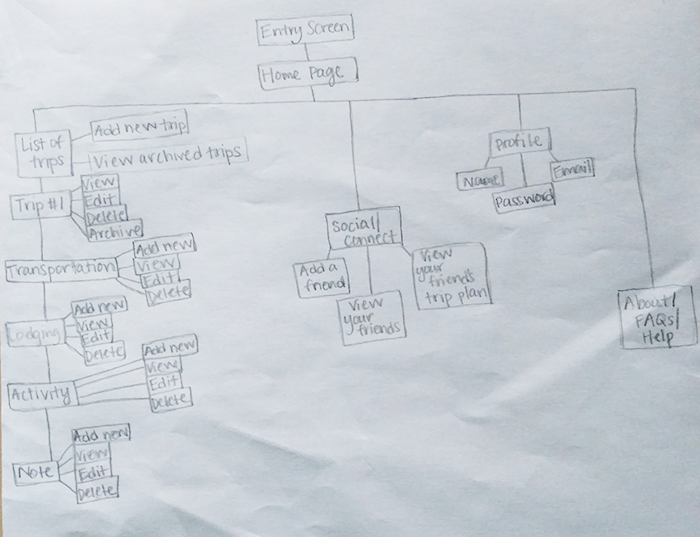 Entry Screen
Home Page
List of
trips
Add new trip
View archived trips
Trip #1
View
Edit
Delete
Archive
Transportation
Add new
View
Edit
Delete
Lodging
Add new
View
Edit
Delete
Activity
Add new
View
Edit
Delete
Note
Add new
View
Edit
Delete
Social/
Connect
Add a
friend
View
your
friends
View
your
friends
trip plan
Profile
Name
Password
Email
About/
FAQs/
Help